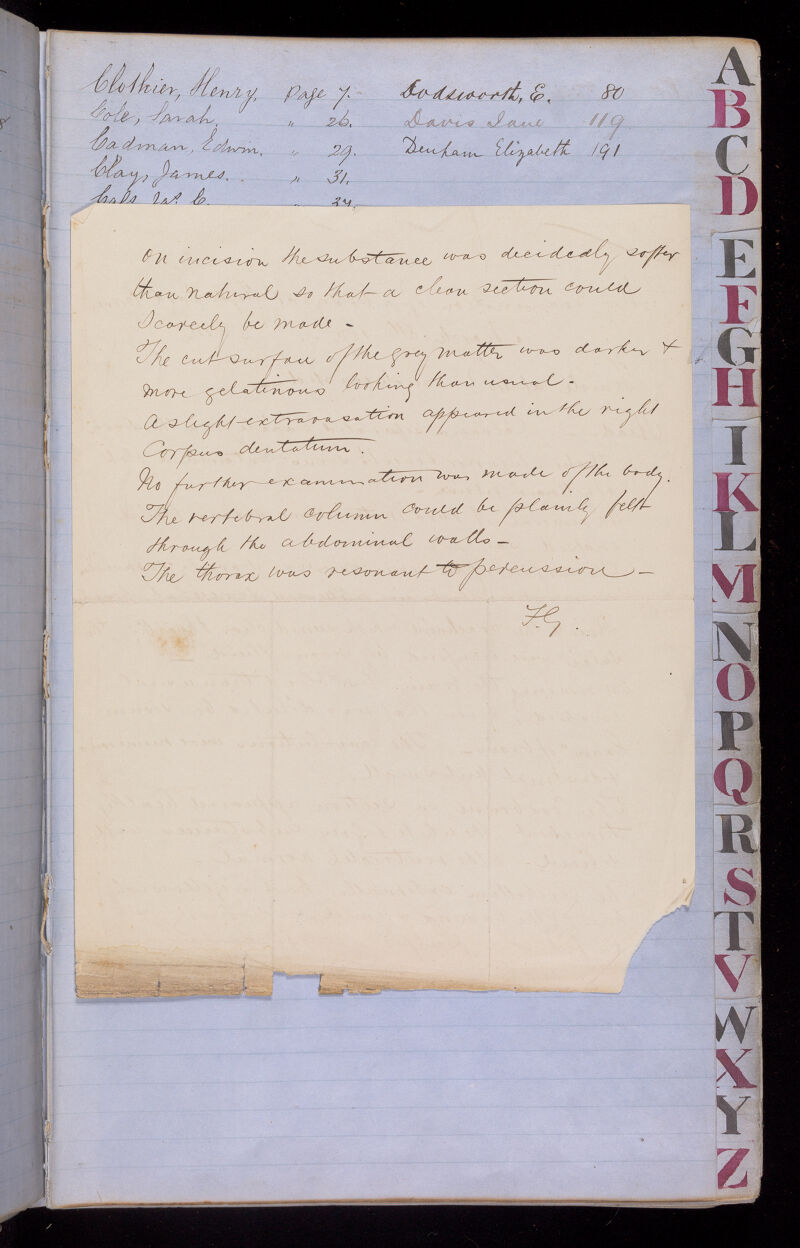 Clothier, Henry, Page 7. Dodsworth, E. 80
Cole, Sarah, " 26. Davis Jane 119
Cadman, Edwin, " 29. Denham Elizabeth 191
Clay, James. " 31.
On incision the substance was decidedly softer
than natural so that a clean section could
scarcely be made -
The cut surface of the grey matter was darker +
more gelatinous looking than usual -
A slight extravasation appeared in the right
Corpus dentatum.
No further examination was made of the body.
The vertebral column could be plainly felt
through the abdominal walls -
The thorax was resonant to percussion -
A
B
C
D
E
F
G
H
I
K
L
M
N
O
P
Q
R
S
T
V
W
X
Y
Z